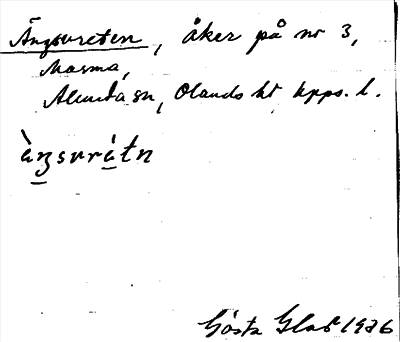 Ängsvreten, åker på nr 3,
Marma,
Alunda sn, Olands hd Upps. l.
àŋsvrètn
Gösta Glas 1926